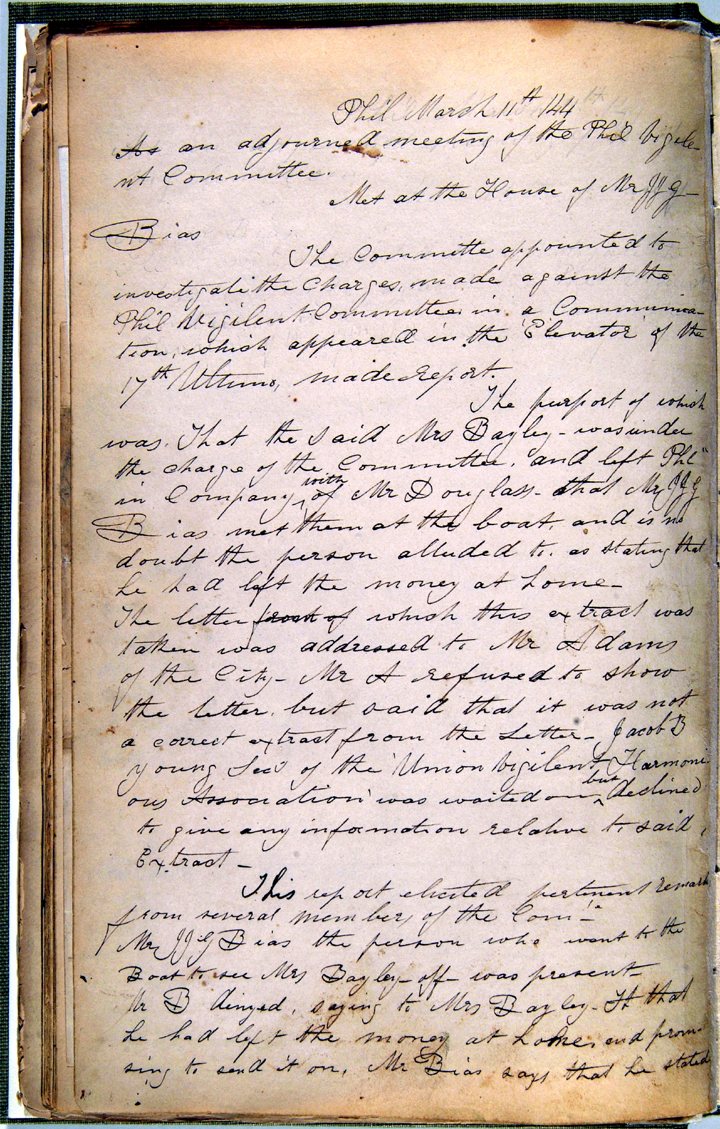 Phil March 11th /44
As an adjourned meeting of the Phil Vigile-
nt Committee.
Met at the House of Mr JJG-
Bias
The Committe appointed to
investigate the Charges, made against the
Phil Vigilent Committee, in a Communica-
tion, which appeared in the 'Elevator' of the
17th Ultimo, made report.
The purport of which
was. That the said Mrs Bayley - was under
the charge of the Committee. and left Phil"
in Company with of Mr Douglass - that Mr JJG
Bias met them at the boat. and is no
doubt the person alluded to. as stating that
he had left the money at home -
The letter from of which this extract was
taken was addressed to Mr Adams
of the City - Mr A refused to show
the letter. but said that it was not
a correct extract from the Letter - Jacob B
Young Sec' of the 'Union Vigilent Harmoni
ous Association' was waited on - but declined
to give any information relative to said
Extract -
This report elicited pertinent remark
from several members of the Com-
Mr JJG Bias the person who went to the
Boat to see Mrs Bayley - off - was present -
Mr B denyed, saying to Mrs Bayley - that
he had left the money at home, and prom-
sing to send it on, Mr Bias says that he stated